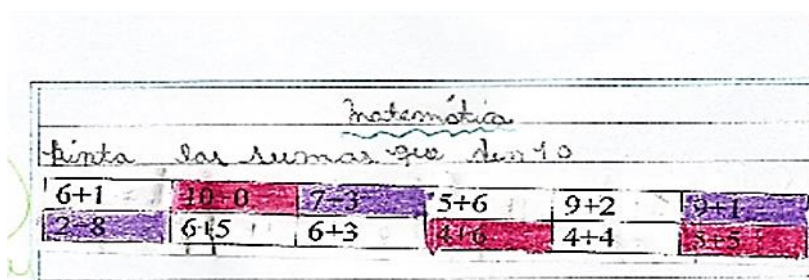 Matemática
Pinta las sumas que den 10
6+1 10+0 7+3 5+6 9+2 9+1
2+8 6+5 6+3 4+6 4+4 5+5